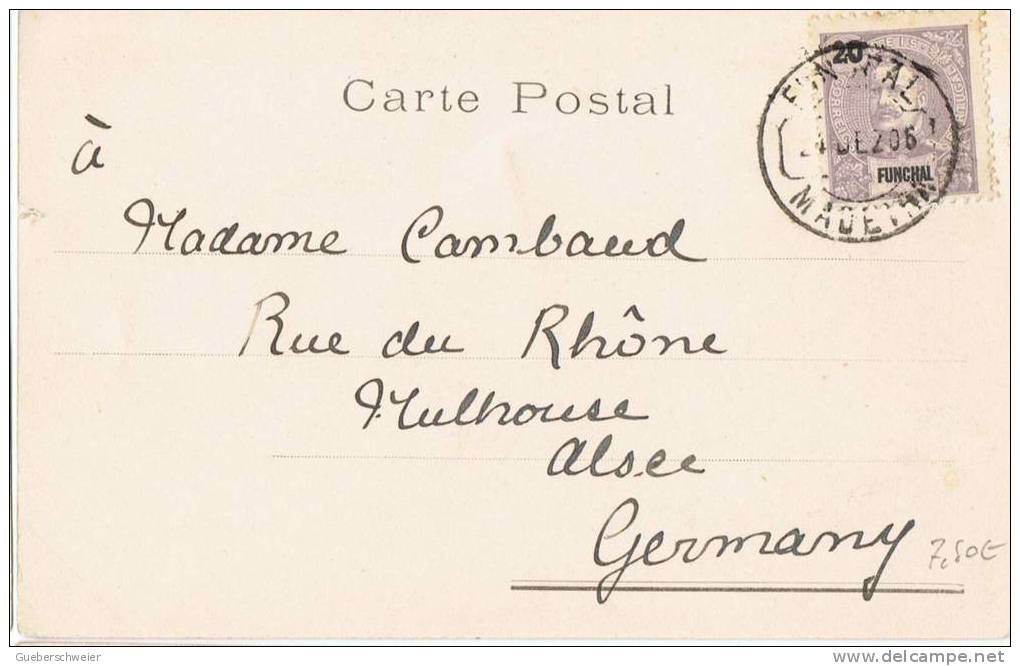 Carte Postal
20
FUNCHAL
24 DEZ 06
FUNCHAL
MADEIRA
à
Madame Cambaud
Rue du Rhône
Mulhouse
Alsce
Germany
7,50€
Gueberschweier
www.delcampe.net